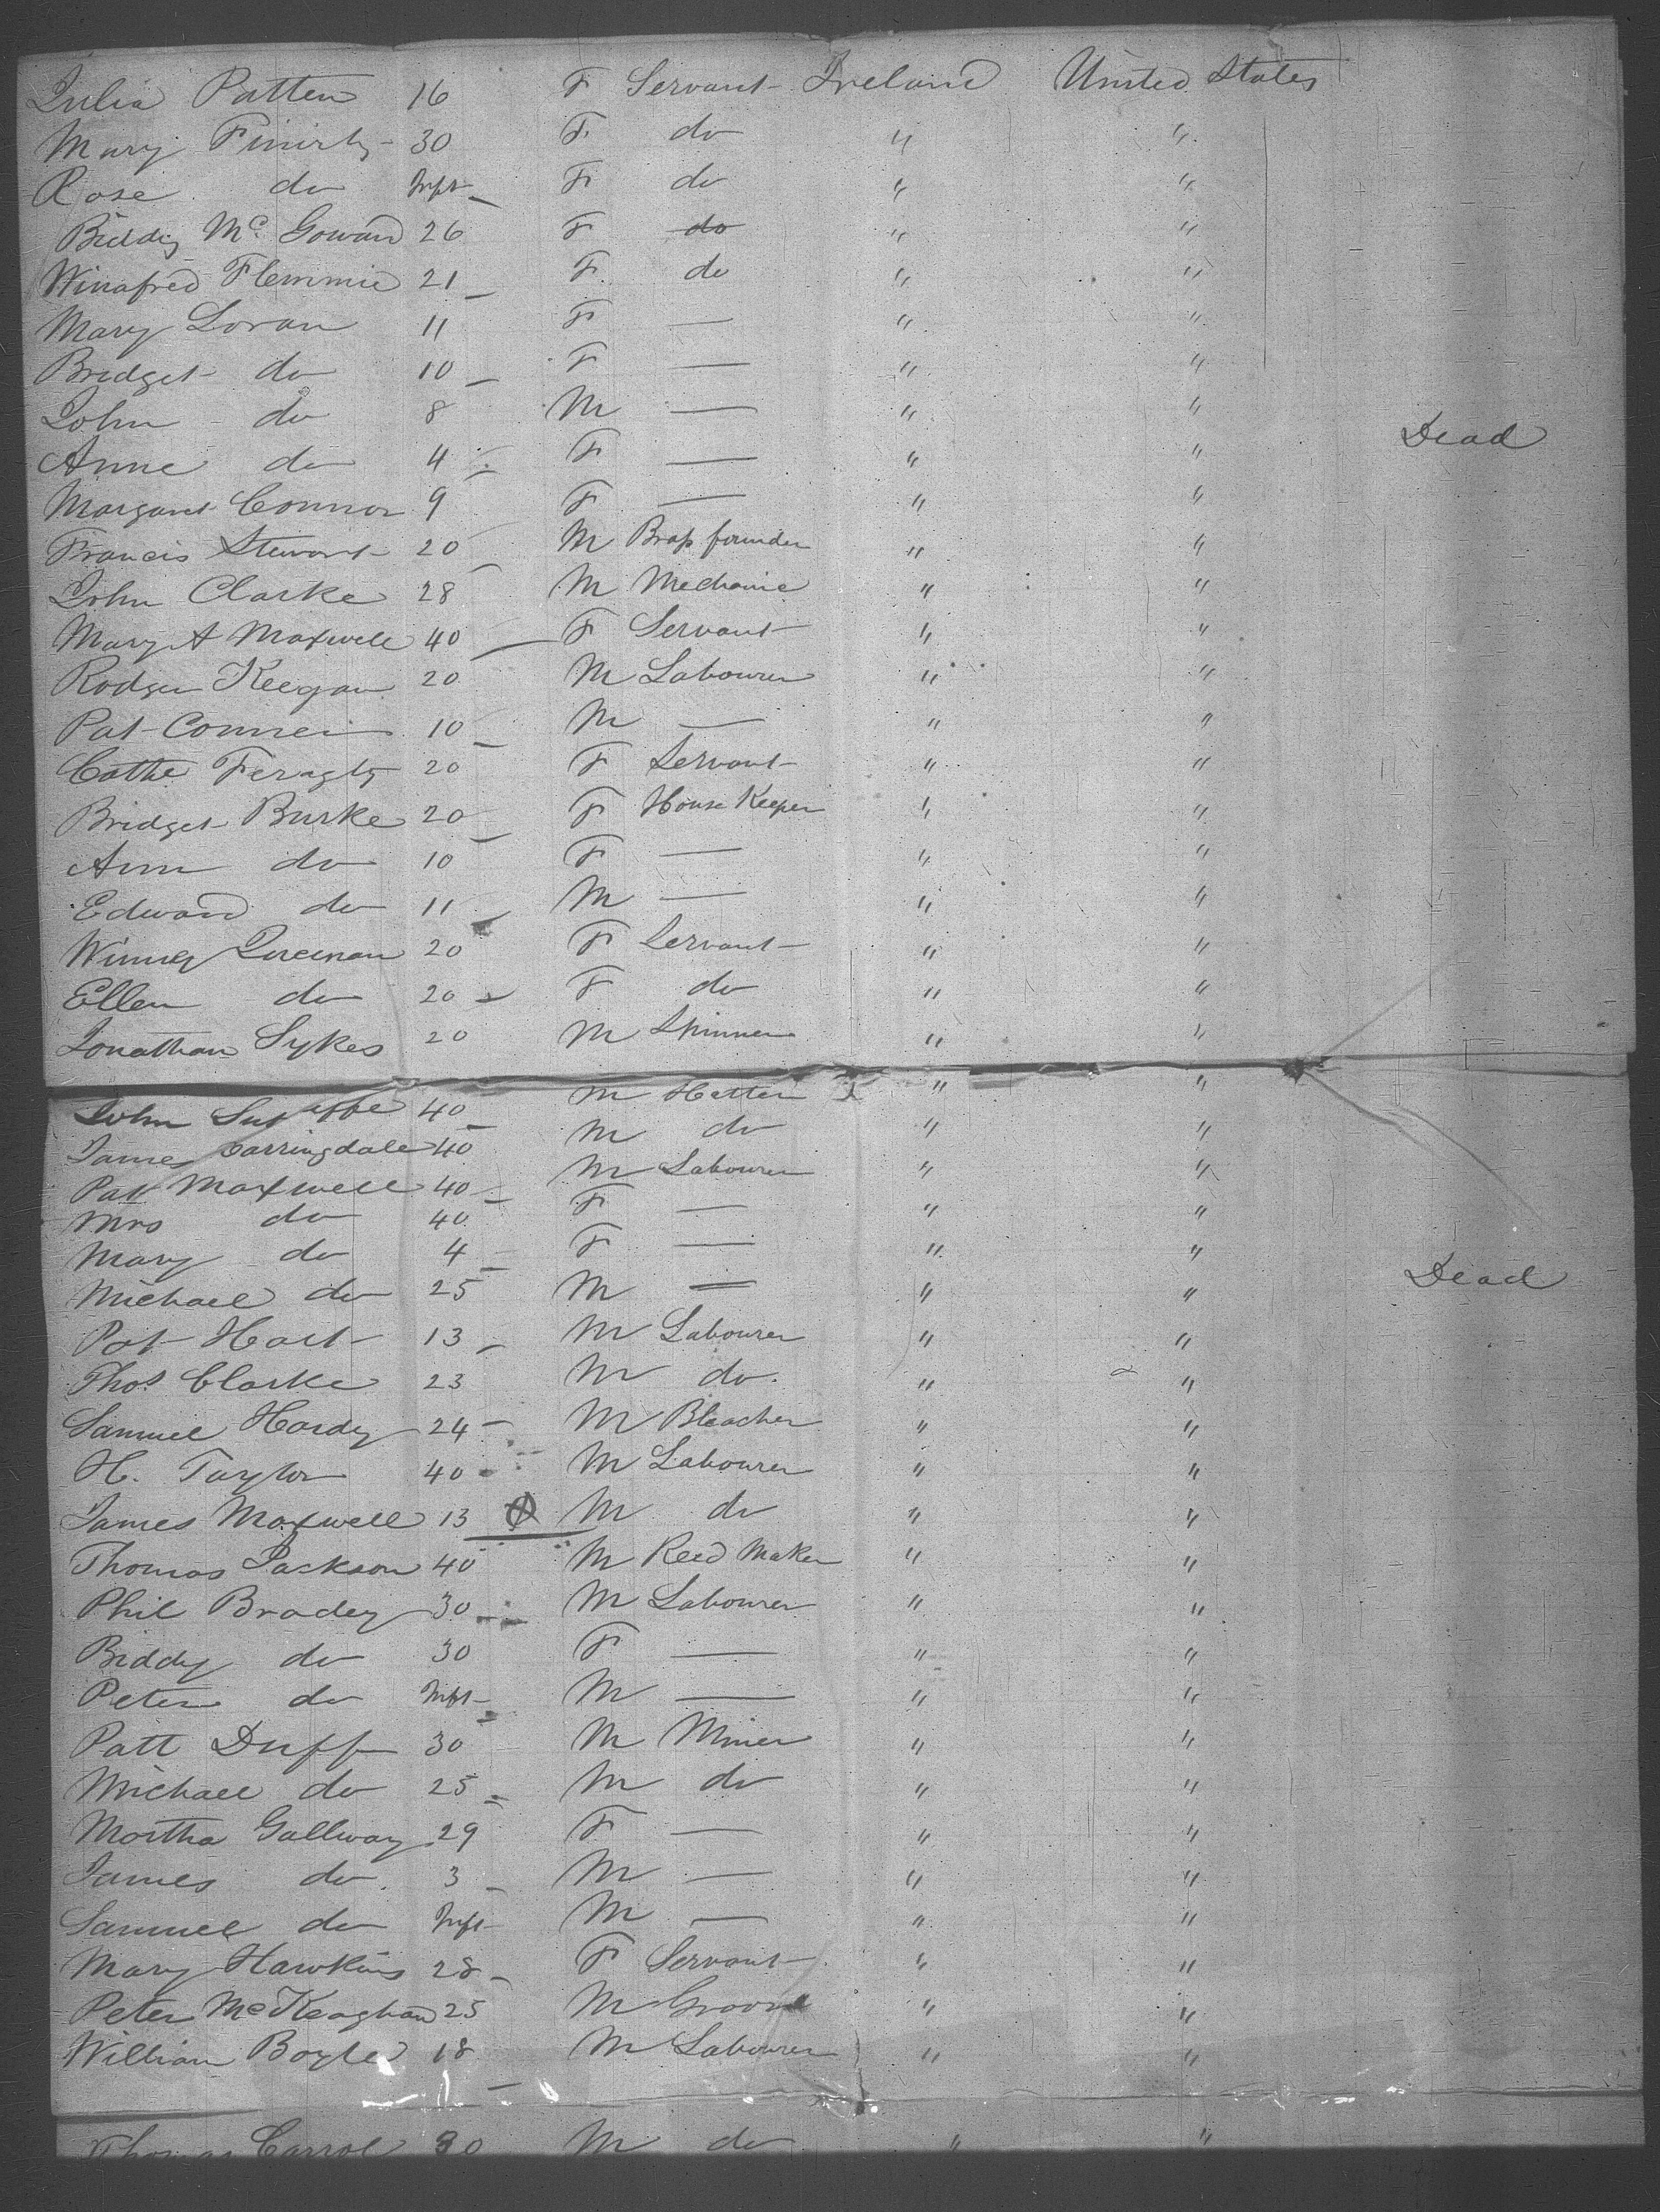 Julia Patten 16 F Servant Ireland United States
Mary Finirty 30 F do " "
Rose do Inft F do " "
Biddy Mc Gowan 26 F do " "
Winafred Flemmie 21 F do " "
Mary Loran 11 F — " "
Bridget do 10 F — " "
John do 8 M — " "
Anne do 4 F — " " Dead
Margaret Connor 9 F — " "
Francis Stewart 20 M Brass founder " "
John Clarke 28 M Mechanic " "
Mary A Maxwell 40 F Servant " "
Rodger Keegan 20 M Labourer " "
Pat Conner 10 M — " "
Cathe Feragty 20 F Servant " "
Bridget Burke 20 F House Keeper " "
Ann do 10 F — " "
Edward do 11 M — " "
Winney 20 F Servant " "
Ellen do 20 F do " "
Jonathan Sykes 20 M Spinner " "
John 40 M Hatter " "
James Barringdale 40 M do " "
Patt Maxwell 40 M Labourer " "
Mrs do 40 F — " "
Mary do 4 F — " "
Michael do 25 M — " " Dead
Pat Hart 13 M Labourer " "
Thos Clarke 23 M do " "
Samuel Hardy 24 M Bleacher " "
H. Taylor 40 M Labourer " "
James Maxwell 13 M do " "
Thomas Jackson 40 M Reed Maker " "
Phil Bradey 30 M Labourer " "
Biddy do 30 F — " "
Peter do Inft M — " "
Patt Duff 30 M Miner " "
Michael do 25 M do " "
Martha Gallway 29 F — " "
James do 3 M — " "
Samuel do Inft M — " "
Mary Hawkins 28 F Servant " "
Peter Mc Keaghan 25 M Groom " "
William Boyle 18 M Labourer " "
Thomas Carrol 30 M do " "